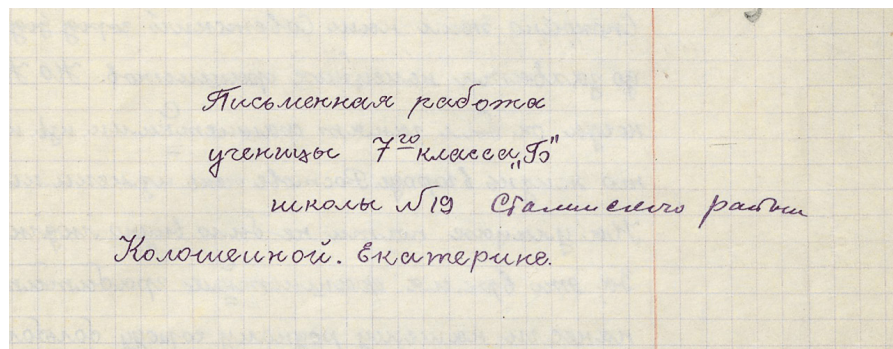 Письменная работа
ученицы 7го класса „Б"
школы №19 Сталинского района
Колошеиной. Екатерине.